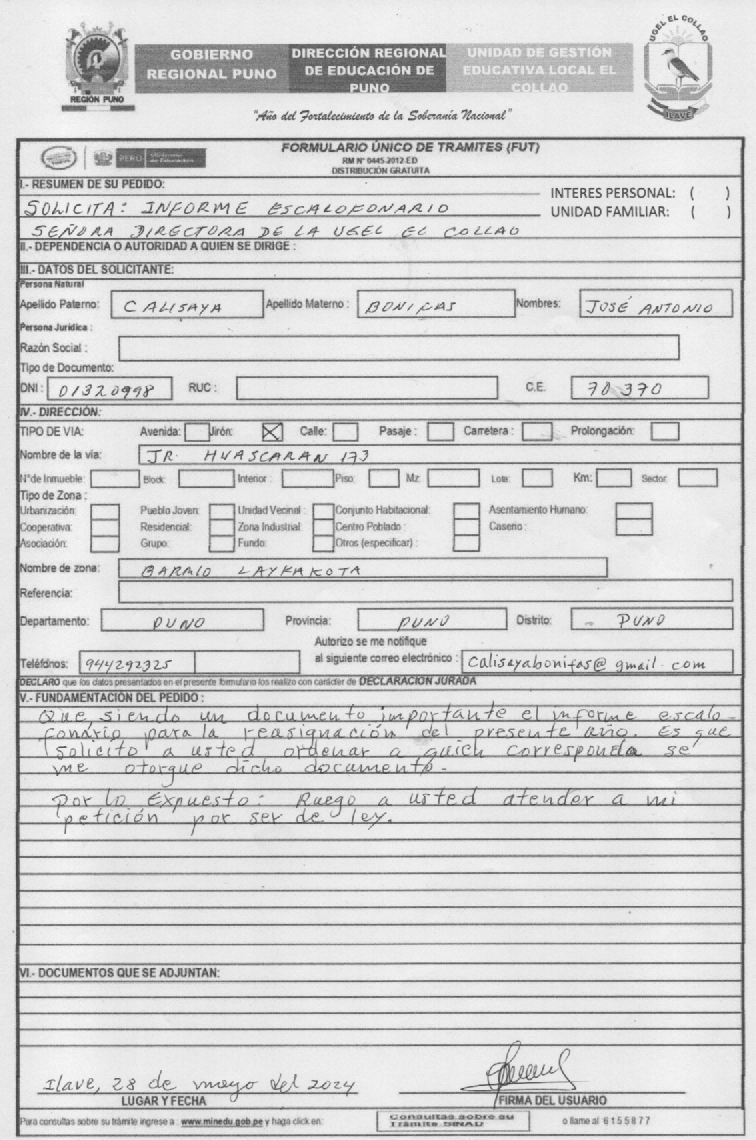 GOBIERNO REGIONAL PUNO
DIRECCIÓN REGIONAL DE EDUCACIÓN DE PUNO
UNIDAD DE GESTIÓN EDUCATIVA LOCAL EL COLLAO
REGIÓN PUNO
UGEL EL COLLAO
ILAVE
"Año del Fortalecimiento de la Soberanía Nacional"
PERÚ Ministerio de Educación
FORMULARIO ÚNICO DE TRAMITES (FUT)
RM Nº 0445-2012-ED
DISTRIBUCIÓN GRATUITA
I.- RESUMEN DE SU PEDIDO:
INTERES PERSONAL: ( )
SOLICITA: INFORME ESCALOFONARIO
UNIDAD FAMILIAR: ( )
SEÑORA DIRECTORA DE LA UGEL EL COLLAO
II.- DEPENDENCIA O AUTORIDAD A QUIEN SE DIRIGE :
III.- DATOS DEL SOLICITANTE:
Persona Natural
Apellido Paterno: CALISAYA Apellido Materno : BONIFAS Nombres: JOSÉ ANTONIO
Persona Jurídica :
Razón Social :
Tipo de Documento:
DNI : 01320998 RUC : C.E. 70370
IV.- DIRECCIÓN:
TIPO DE VIA: Avenida: Jirón: X Calle: Pasaje : Carretera : Prolongación:
Nombre de la vía: JR. HUASCARAN 173
N°de Inmueble: Block: Interior : Piso: Mz: Lote: Km: Sector:
Tipo de Zona :
Urbanización: Pueblo Joven: Unidad Vecinal : Conjunto Habitacional: Asentamiento Humano:
Cooperativa: Residencial: Zona Industrial: Centro Poblado : Caserio :
Asociación: Grupo: Fundo: Otros (especificar) :
Nombre de zona: BARRIO LAYKAKOTA
Referencia:
Departamento: PUNO Provincia: PUNO Distrito: PUNO
Autorizo se me notifique
Teléfonos: 944292325 al siguiente correo electrónico : calisayabonifas@gmail.com
DECLARO que los datos presentados en el presente formulario los realizo con carácter de DECLARACION JURADA
V.- FUNDAMENTACIÓN DEL PEDIDO :
Que, siendo un documento importante el informe escalo-
fonario para la reasignación del presente año. Es que
solicito a usted ordenar a quien corresponda se
me otorgue dicho documento.
Por lo Expuesto: Ruego a usted atender a mi
petición por ser de ley.
VI.- DOCUMENTOS QUE SE ADJUNTAN:
Ilave, 28 de mayo del 2024
LUGAR Y FECHA FIRMA DEL USUARIO
Para consultas sobre su trámite ingrese a : www.minedu.gob.pe y haga click en: Consultas sobre su Trámite SINAD o llame al 6155877